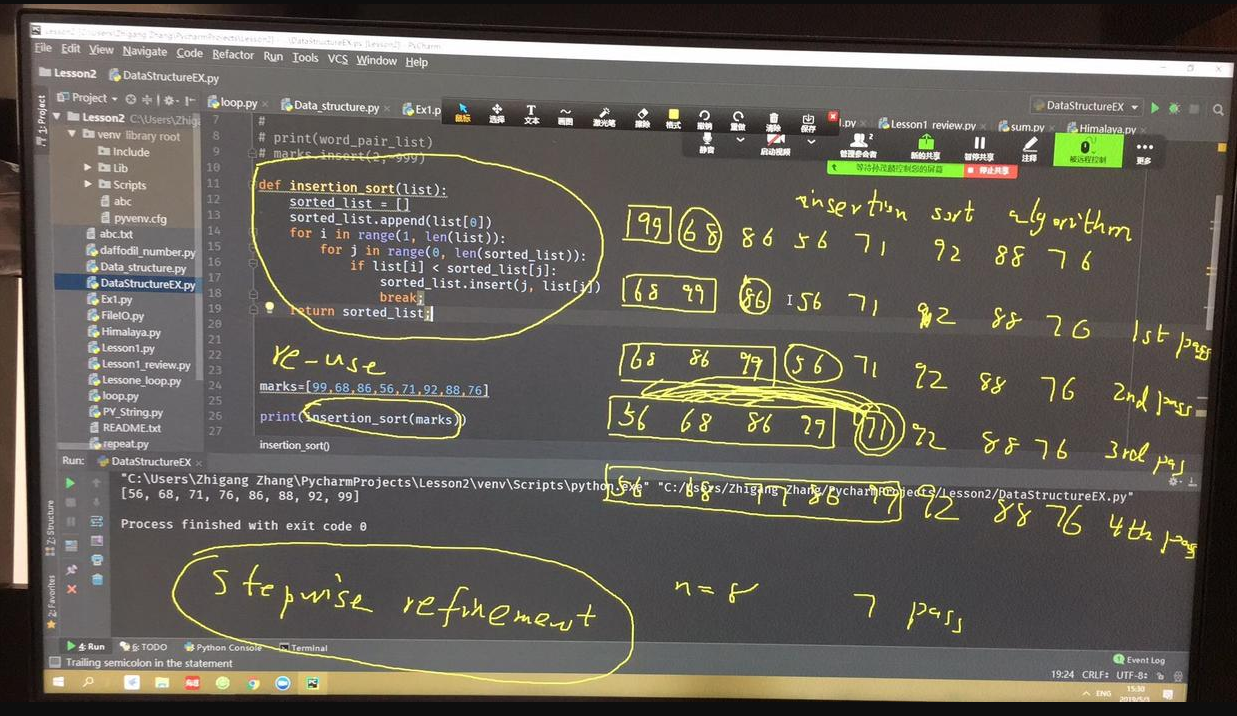 File Edit View Navigate Code Refactor Run Tools VCS Window Help
Lesson2 DataStructureEX.py
Project
loop.py Data_structure.py Ex1.p
DataStructureEX
l.py Lesson1_review.py sum.py Himalaya.py
鼠标 选择 文本 画图 激光笔 擦除 格式 撤销 重做 清除 保存
静音 启动视频 管理参会者 2 新的共享 暂停共享 注释 被远程控制 更多
停止共享
1: Project
Lesson2 C:\Users\Zhig
venv library root
Include
Lib
Scripts
abc
pyvenv.cfg
abc.txt
daffodil_number.py
Data_structure.py
DataStructureEX.py
Ex1.py
FileIO.py
Himalaya.py
Lesson1.py
Lesson1_review.py
Lessone_loop.py
loop.py
PY_String.py
README.txt
repeat.py
7 #
8 # print(word_pair_list)
9 # marks.insert(2, 999)
10
11 def insertion_sort(list):
12 sorted_list = []
13 sorted_list.append(list[0])
14 for i in range(1, len(list)):
15 for j in range(0, len(sorted_list)):
16 if list[i] < sorted_list[j]:
17 sorted_list.insert(j, list[i])
18 break;
19 return sorted_list;
20
21
22
23
24 marks=[99,68,86,56,71,92,88,76]
25
26 print(insertion_sort(marks))
27
insertion_sort()
re-use
insertion sort algorithm
99 68 86 56 71 92 88 76
68 99 86 56 71 92 88 76 1st pass
68 86 99 56 71 92 88 76 2nd pass
56 68 86 99 71 92 88 76 3rd pas
56 68 71 86 99 92 88 76 4th pass
n=8 7 pass
stepwise refinement
Run: DataStructureEX
"C:\Users\Zhigang Zhang\PycharmProjects\Lesson2\venv\Scripts\python.exe" "C:/Users/Zhigang Zhang/PycharmProjects/Lesson2/DataStructureEX.py"
[56, 68, 71, 76, 86, 88, 92, 99]
Process finished with exit code 0
Z: Structure
2: Favorites
4: Run 6: TODO Python Console Terminal
Event Log
Trailing semicolon in the statement
19:24 CRLF: UTF-8:
ENG
15:30
2019/5/3